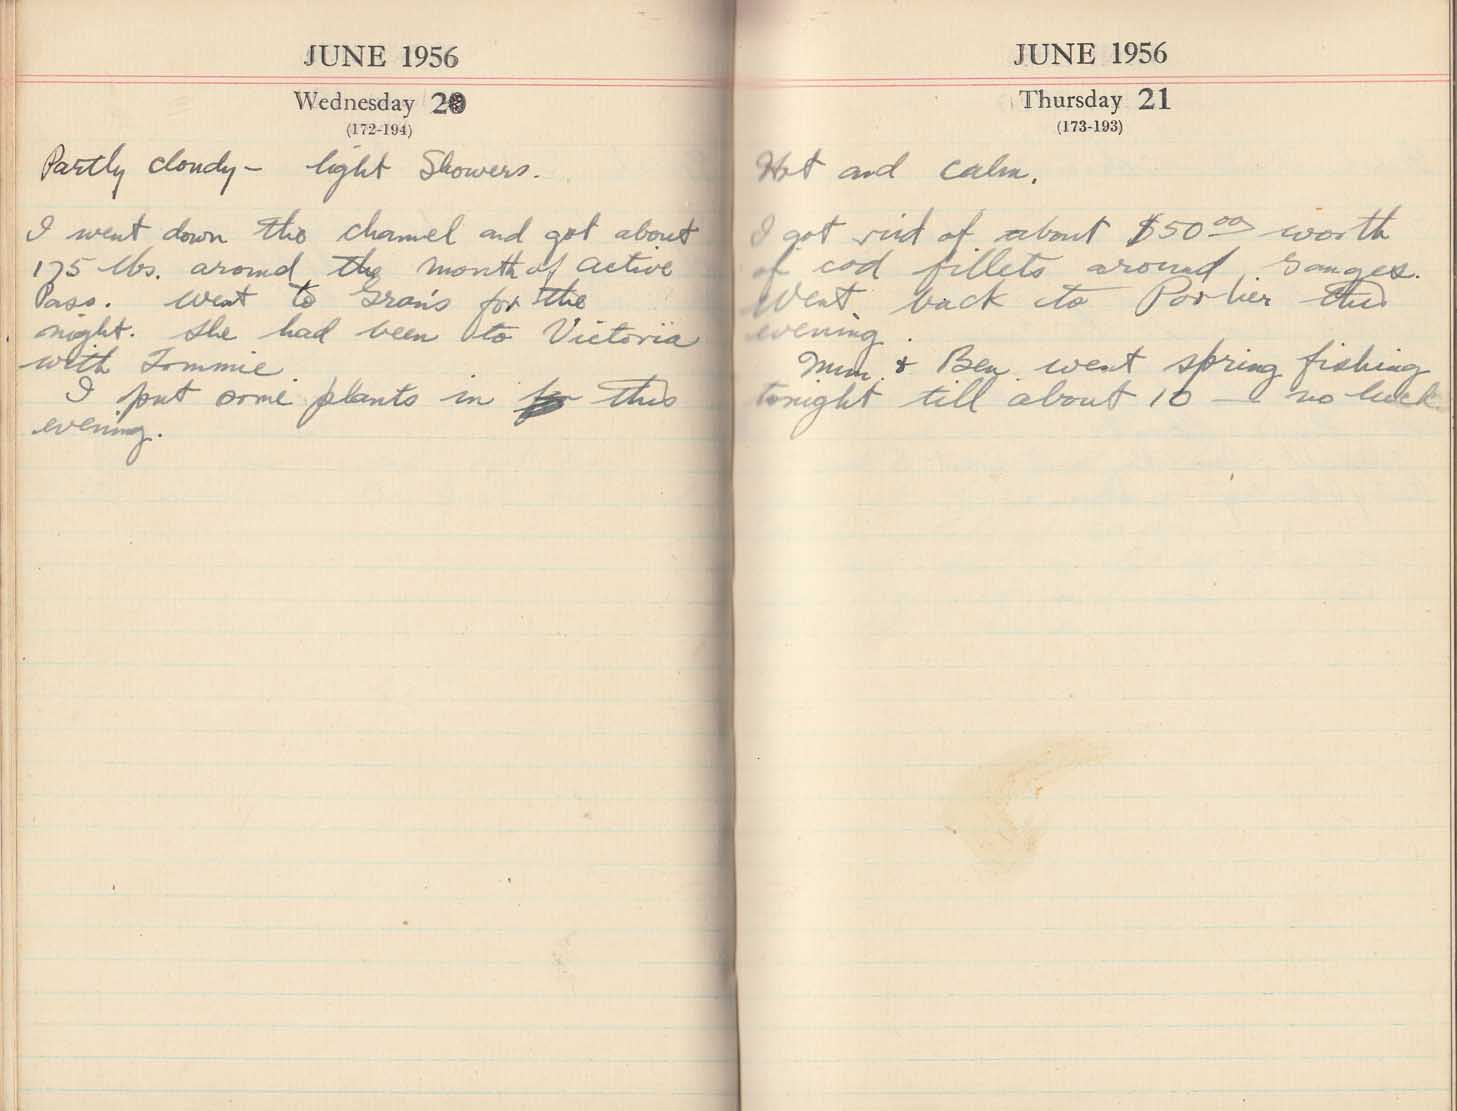 JUNE 1956
Wednesday 20
(172-194)
Partly cloudy - light Showers.
I went down the channel and got about
175 lbs. around the mouth of Active
Pass. Went to Gran's for the
night. She had been to Victoria
with Tommie.
I put some plants in this
evening.
JUNE 1956
Thursday 21
(173-193)
Hot and calm.
I got rid of about $50.00 worth
of cod fillets around Ganges.
Went back to Porlier this
evening.
Mum & Ben went spring fishing
tonight till about 10 - no luck.